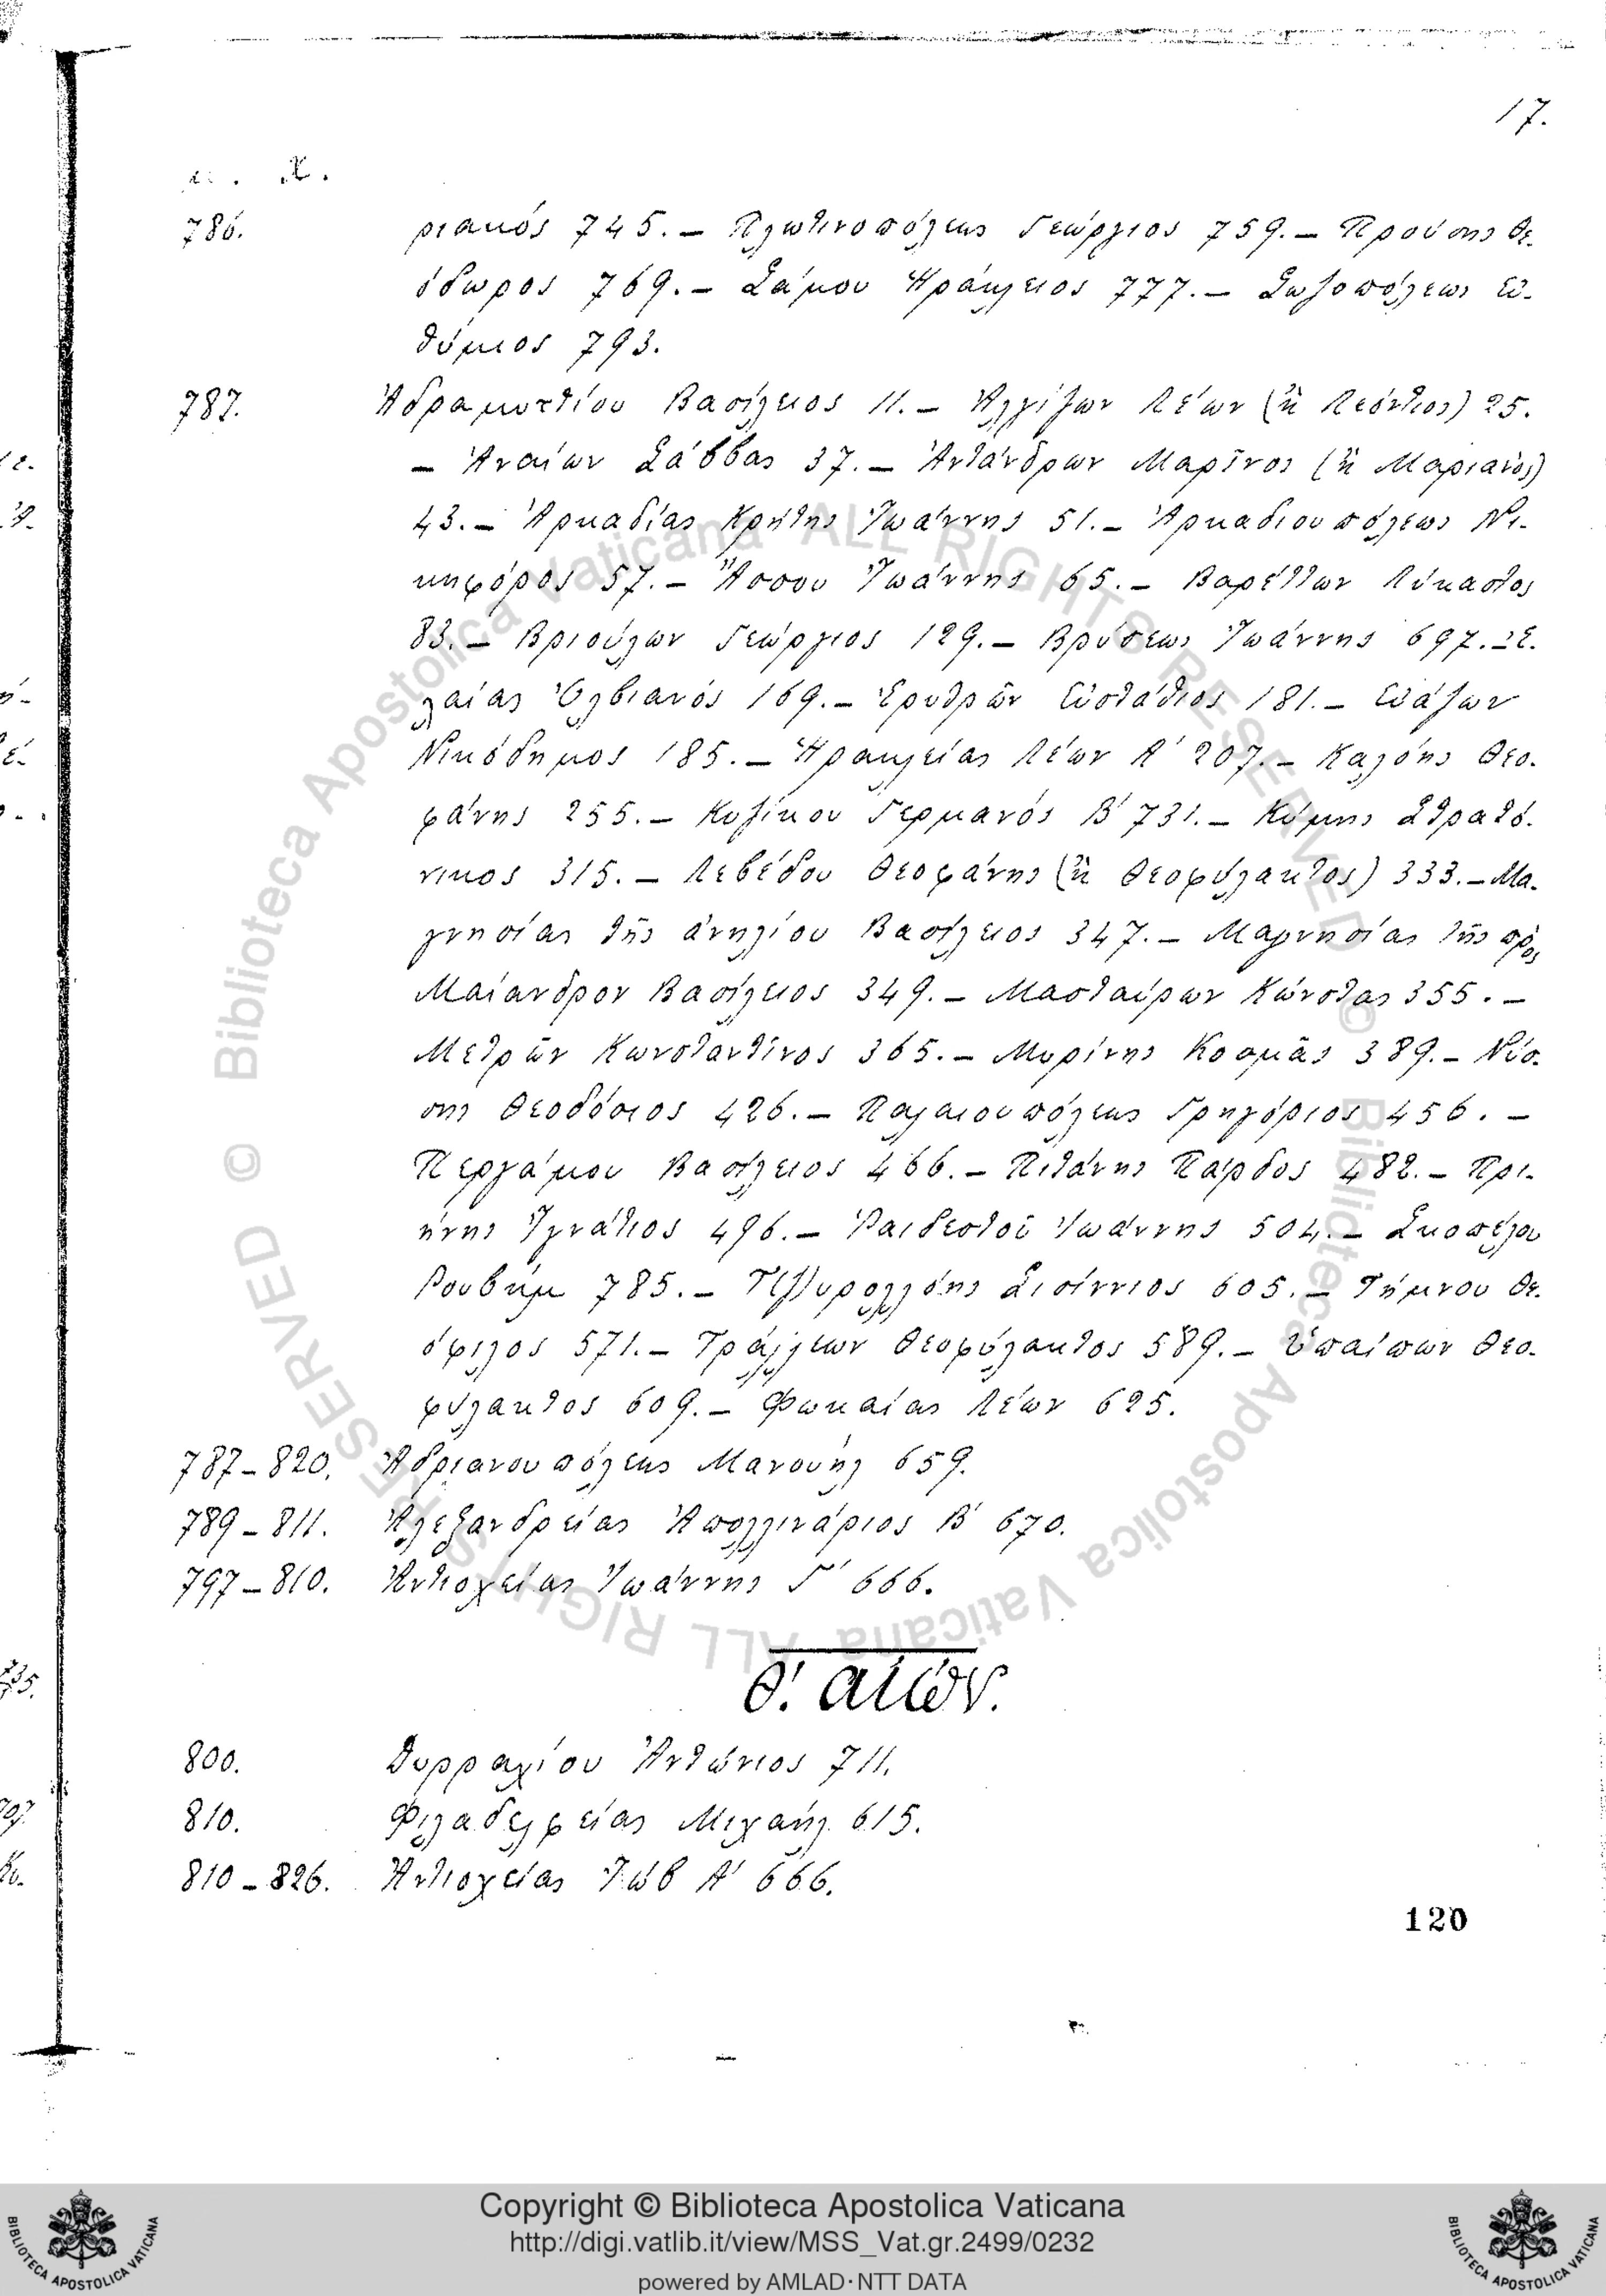 17.
μ. Χ.
786. ριανός 745. – Πλωτινοπόλεως Γεώργιος 759. – Προύσης Θε-
όδωρος 769. – Σάμου Ἡράκλειος 777. – Σωζοπόλεως Εὐ-
θύμιος 793.
787. Ἀδραμυττίου Βασίλειος 11. – Ἀλγίζων Λέων (ἢ Λεόντιος) 25.
– Ἀναίων Σάββας 37. – Ἀντάνδρων Μαρῖνος (ἢ Μαριανὸς)
43. – Ἀρκαδίας Κρήτης Ἰωάννης 51. – Ἀρκαδιουπόλεως Νι-
κηφόρος 57. – Ἄσσου Ἰωάννης 65. – Βαρέττων Λύκαστος
83. – Βριούλων Γεώργιος 129. – Βρύσεως Ἰωάννης 697. – Ἐ-
λαίας Ὀλβιανός 169. – Ἐρυθρῶν Εὐστάθιος 181. – Εὐάζων
Νικόδημος 185. – Ἡρακλείας Λέων Α΄ 207. – Καλόης Θεο-
φάνης 255. – Κυζίκου Γερμανός Β΄ 731. – Κύμης Στρατό-
νικος 315. – Λεβέδου Θεοφάνης (ἢ Θεοφύλακτος) 333. – Μα-
γνησίας τῆς ἀνηλίου Βασίλειος 347. – Μαγνησίας τῆς πρὸς
Μαίανδρον Βασίλειος 349. – Μασταύρων Κώνστας 355. –
Μετρῶν Κωνσταντῖνος 365. – Μυρίνης Κοσμᾶς 389. – Νύσ-
σης Θεοδόσιος 426. – Παλαιουπόλεως Γρηγόριος 456. –
Περγάμου Βασίλειος 466. – Πιτάνης Πάρδος 482. – Πρι-
ήνης Ἰγνάτιος 496. – Ῥαιδεστοῦ Ἰωάννης 504. – Σκοπέλου
Ρουβὴμ 785. – Τ(Ζ)υρολλόης Σισίννιος 605. – Τήμνου Θε-
όφιλος 571. – Τράλλεων Θεοφύλακτος 589. – Ὑπαίπων Θεο-
φύλακτος 609. – Φωκαίας Λέων 625.
787–820. Ἀδριανουπόλεως Μανουὴλ 659.
789–811. Ἀλεξανδρείας Ἀπολλινάριος Β΄ 670.
797–810. Ἀντιοχείας Ἰωάννης Γ΄ 666.
Θ΄. αἰών.
800. Δυρραχίου Ἀντώνιος 711.
810. Φιλαδελφείας Μιχαήλ 615.
810–826. Ἀντιοχείας Ἰώβ Α΄ 666.
120
© Biblioteca Apostolica Vaticana ALL RIGHTS RESERVED © Biblioteca Apostolica Vaticana ALL RIGHTS RESERVED
Copyright © Biblioteca Apostolica Vaticana
http://digi.vatlib.it/view/MSS_Vat.gr.2499/0232
powered by AMLAD·NTT DATA
BIBLIOTECA APOSTOLICA VATICANA
BIBLIOTECA APOSTOLICA VATICANA